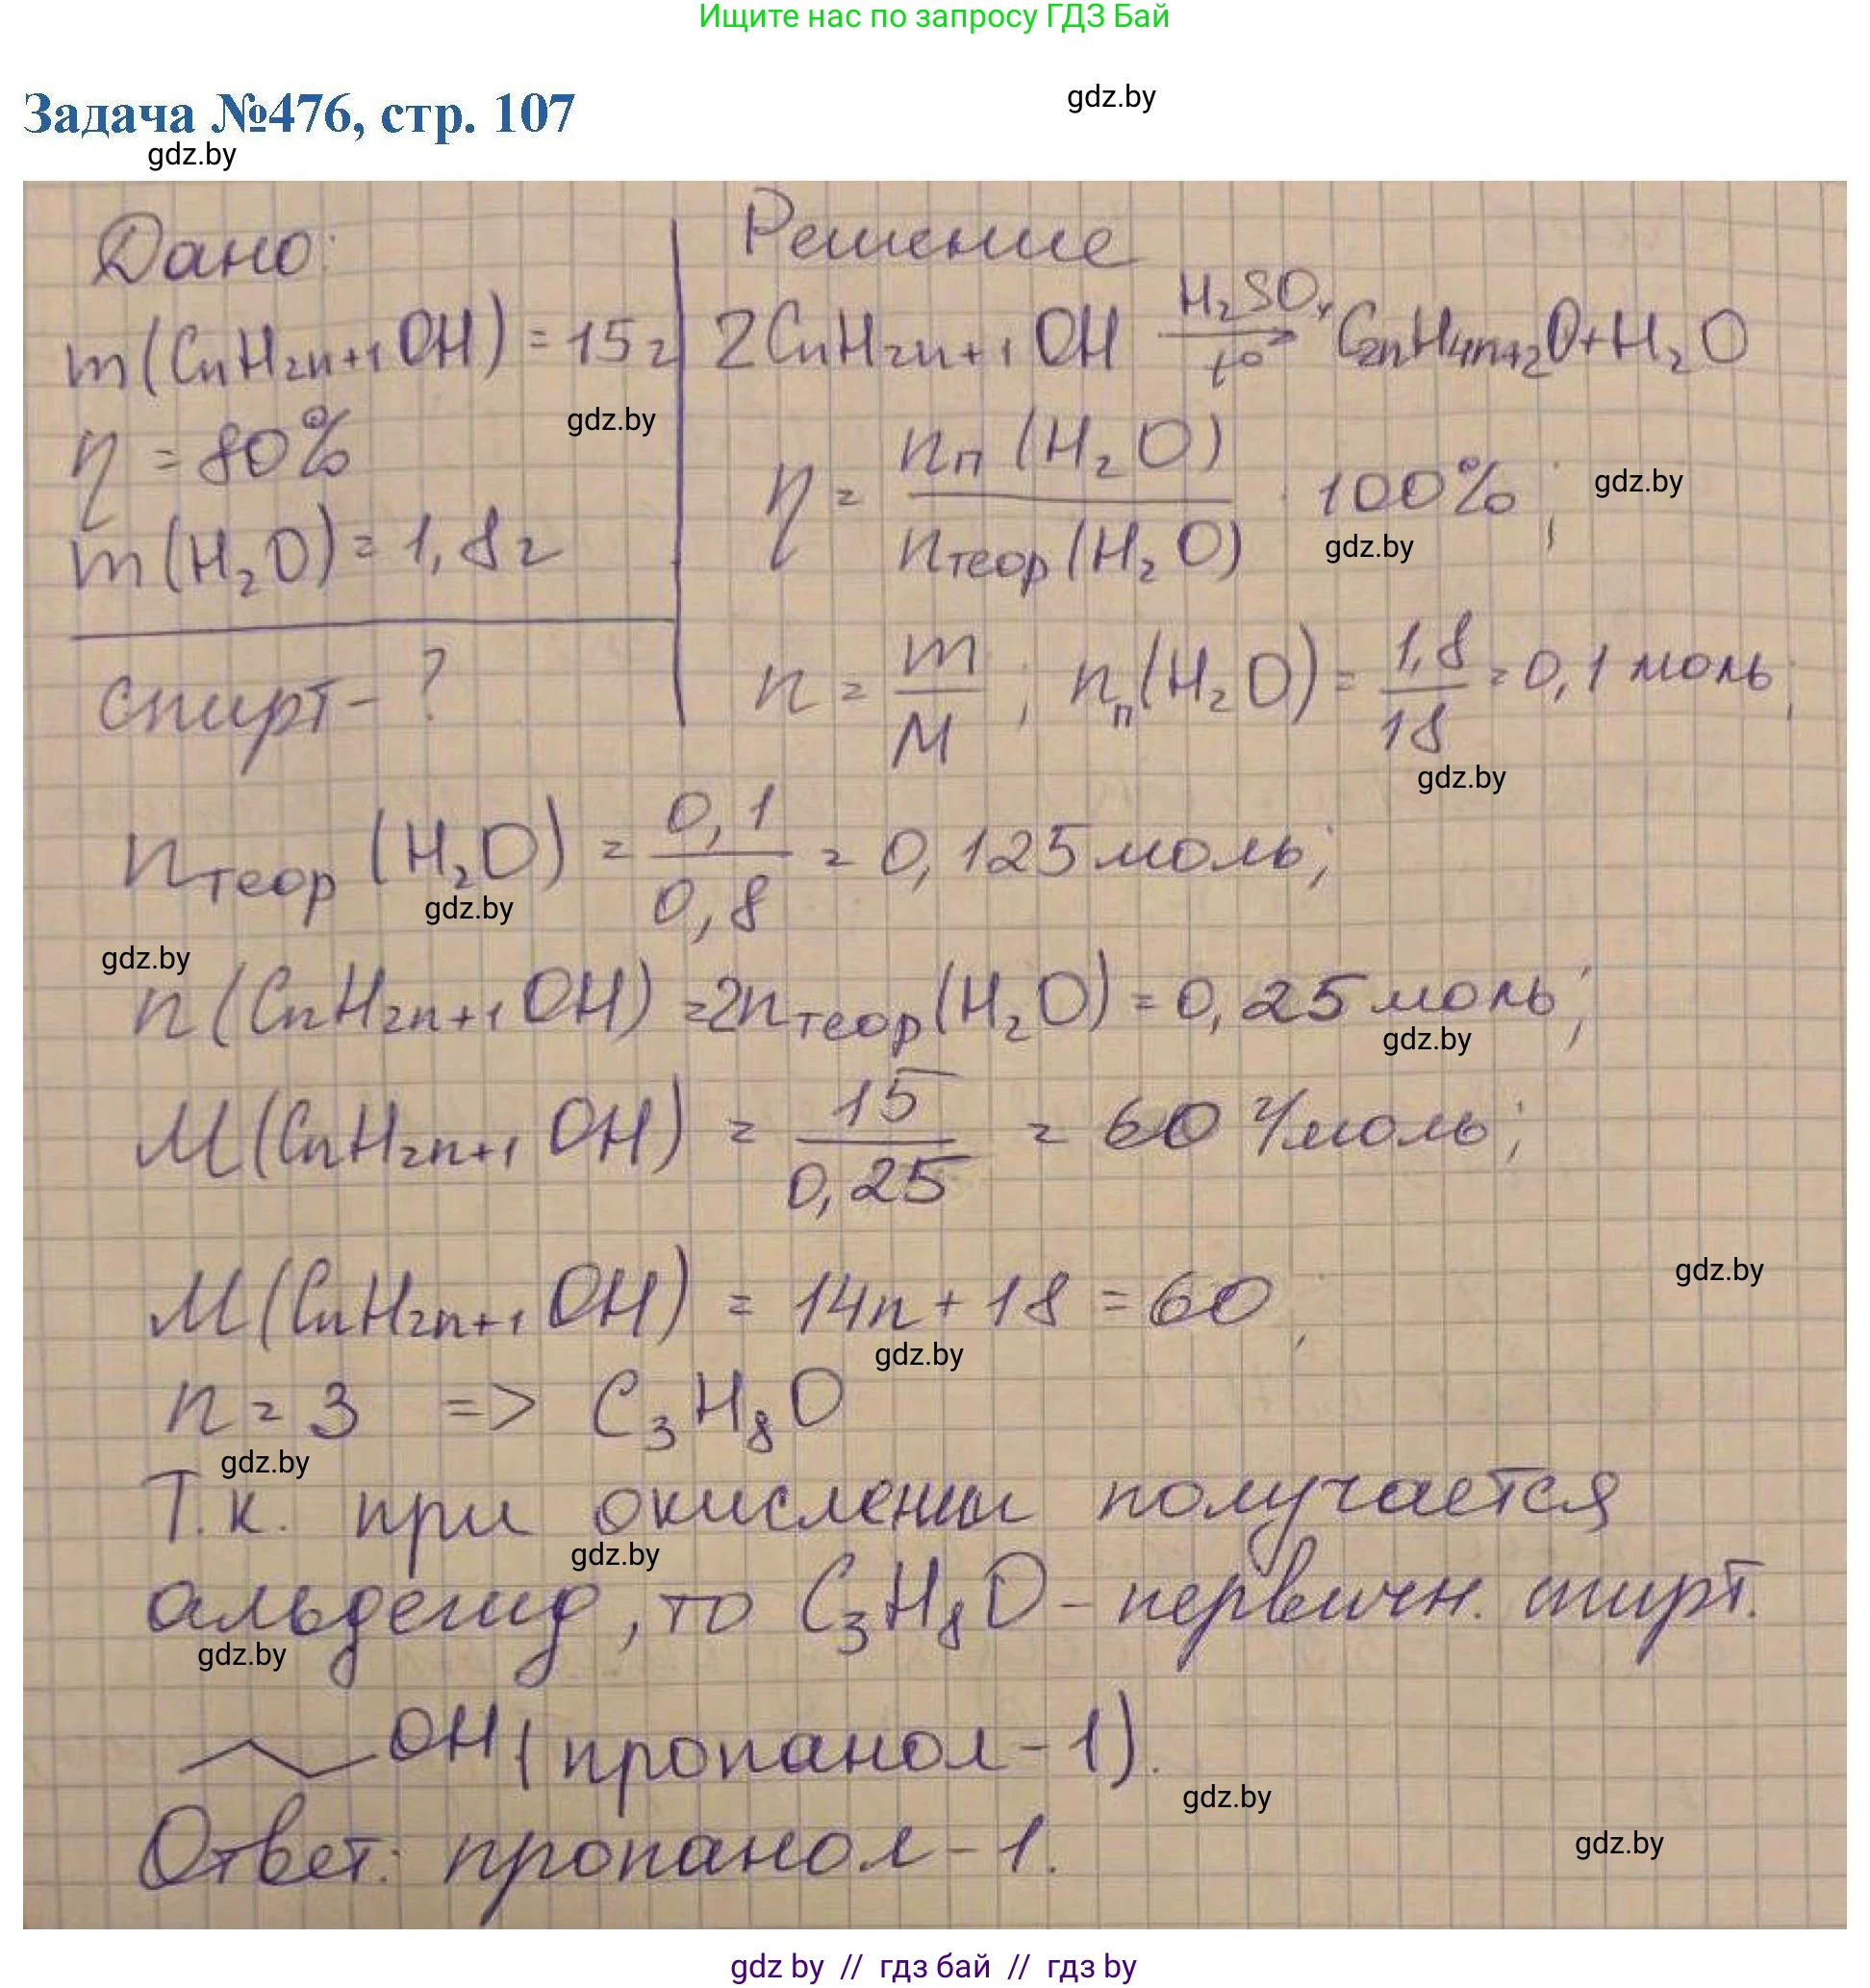 Ищите нас по запросу ГДЗ Бай
Задача №476, стр. 107
gdz.by
gdz.by
Дано:
Решение
m(CnH2n+1OH) = 15г
2CnH2n+1OH H2SO4 t° → C2nH4n+2O + H2O
η = 80%
gdz.by
η = nп(H2O) / nтеор(H2O) · 100%;
gdz.by
gdz.by
m(H2O) = 1,8г
спирт - ?
n = m/M; nп(H2O) = 1,8/18 = 0,1 моль;
gdz.by
nтеор(H2O) = 0,1/0,8 = 0,125 моль;
gdz.by
gdz.by
n(CnH2n+1OH) = 2nтеор(H2O) = 0,25 моль;
gdz.by
M(CnH2n+1OH) = 15/0,25 = 60 г/моль;
gdz.by
M(CnH2n+1OH) = 14n + 18 = 60;
gdz.by
n = 3 => C3H8O
gdz.by
Т.к. при окислении получается
gdz.by
альдегид, то C3H8O - первичн. спирт.
gdz.by
OH (пропанол-1).
gdz.by
Ответ: пропанол-1.
gdz.by
gdz by // гдз бай // гдз by